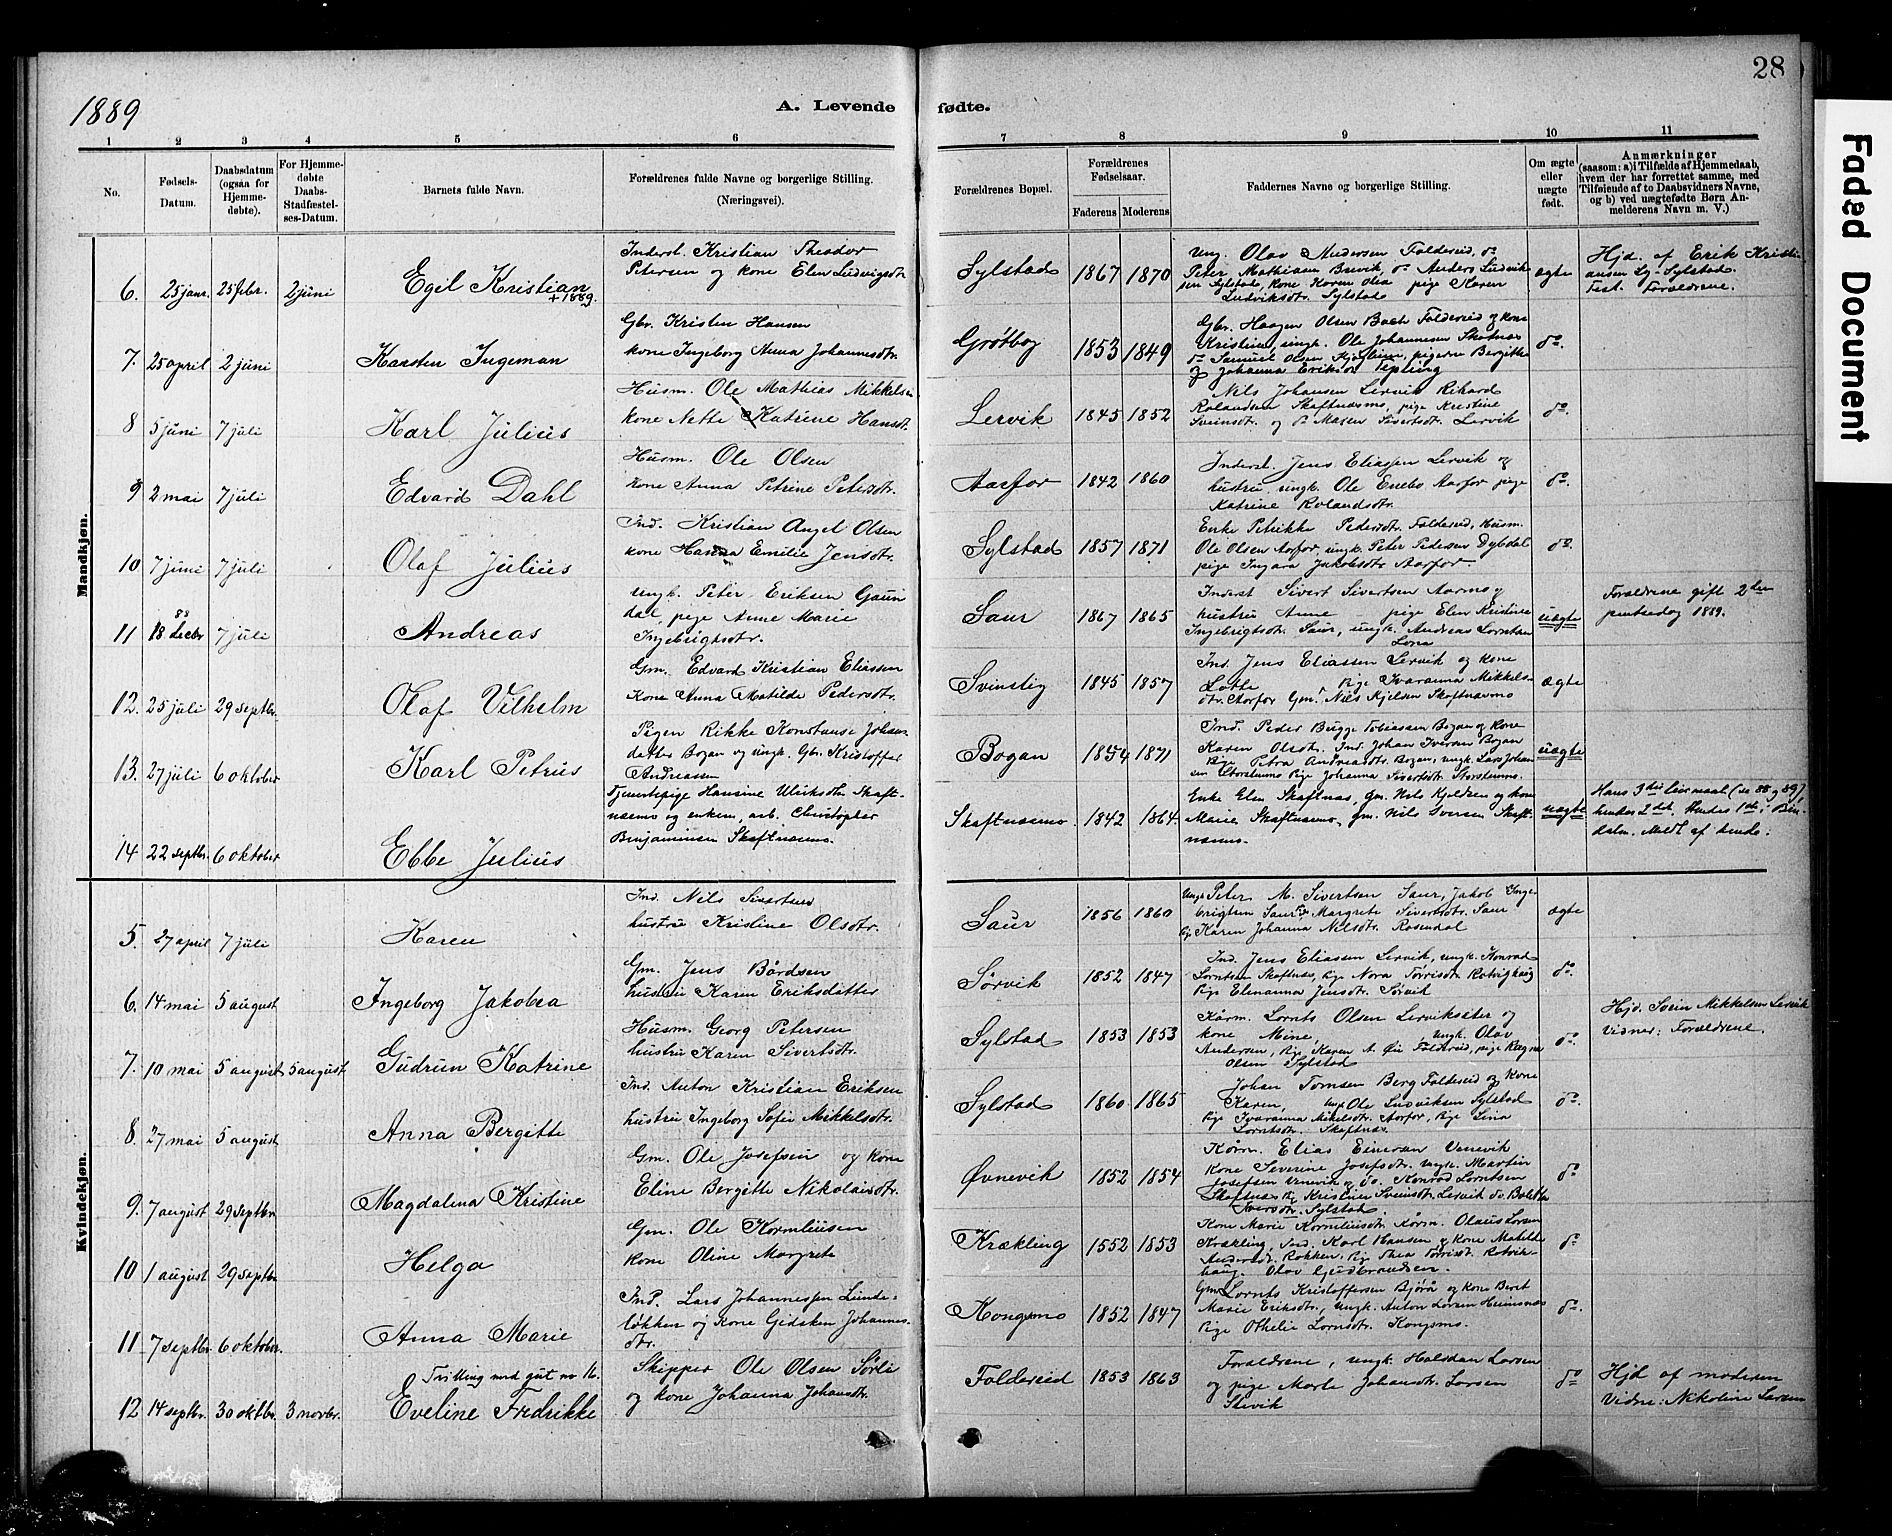 28
1889
A. Levende fødte.
1 2 3 4 5 6 7 8 9 10 11
No.
Fødsels-Datum.
Daabsdatum (ogsaa for Hjemme-døbte).
For Hjemme-døbte Daabs-Stadfæstel-ses-Datum.
Barnets fulde Navn.
Forældrenes fulde Navne og borgerlige Stilling. (Næringsvei).
Forældrenes Bopæl.
Forældrenes Fødselsaar.
Faderens Moderens
Faddernes Navne og borgerlige Stilling.
Om ægte eller uægte født.
Anmærkninger
(saasom: a) i Tilfælde af Hjemmedaab,
hvem der har forrettet samme, med
Tilføiende af to Daabsvidners Navne,
og b) ved uægtefødte Børn An-
melderens Navn m. V.)
Mandkjøn.
6. 25 janr. 25 febr. 2 juni Egil Kristian +1889.
Inderst. Kristian Theodor
Petersen og kone Elen Ludvigsdtr
Sylstad 1867 1870
Ung. Olav Andersen Foldereid, do
Peter Mathiasen Brevik, do Anders Ludvik-
sen Sylstad, kone Karen Olia pige Karen
Ludviksdtr. Sylstad
ægte
Hjd. af Erik Kristi-
ansen Lg. Sylstad
Test. Forældrene.
7. 25 april 2 juni Karsten Ingeman
Gbr. Kristen Hansen
kone Ingeborg Anna Johannesdtr.
Grøtbog 1853 1849
Gbr. Haagen Olsen Bach Foldereid og kone
Kristine, ungk. Ole Johannesen Skotnes
do Samuel Olsen Kjølstien, pigerne Bergitte
og Johanna Eriksdr. Tepling
do.
8 5 juni 7 juli Karl Julius
Husm. Ole Mathias Mikkelsen
kone Nette Katrine Hansdt.
Lervik 1845 1852
Nils Johansen Lervik Rikard
Rolandsen Skaftnesmo, pige Kristine
Sveinsdtr. og do Maren Sivertsdtr. Lervik
do.
9 2 mai 7 juli Edvard Dahl
Husm. Ole Olsen
kone Anna Petrine Petersdtr.
Aarfor 1842 1860
Inderst. Jens Eliassen Lervik og
hustru, ungk. Ole Enebo Aarfor pige
Katrine Rolandsdtr.
do.
10 7 juni 7 juli Olaf Julius
Ind. Kristian Angel Olsen
kone Hanna Emilie Jensdtr.
Sylstad 1857 1871
Enke Petrikke Pedersdtr. Foldereid, Husm.
Ole Olsen Aarfor, ungk. Peter Pedersen Dybdal
pige Ingara Jakobsdtr Aarfor
do.
11 18 88 decbr 7 juli Andreas
Ungk. Peter Eriksen Gaun
dal, pige Anne Marie
Ingebrigtsdtr.
Saur 1867 1865
Inderst Sivert Sivertsen Aarmo og
hustru Anne pige Elen Kristine
Ingebrigtsdtr. Saur, ungk. Andreas Lorntsen
uægte
Forældrene gift 2den
pintsedag 1889.
12. 25 juli 29 septbr. Olaf Vilhelm
Gm. Edvard Kristian Eliassen
Kone Anna Matilde Pedersdtr.
Svinstig 1845 1857
Ind. Jens Eliassen Lervik og kone
Lotte Pige Ivaranna Mikkels-
dtr. Aarfor Gm. Nils Kjelsen Skaftnesmo
ægte
13. 27 juli 6 oktober Karl Petrus
Pigen Rikke Konstanse Johans
datter Bogan og ungk. Gbr. Kristoffer
Andreassen
Bogan 1854 1871
Ind. Peder Bugge Tobiassen Bogan og kone
Karen Olsdtr. Ind. Johan Iversen Bogan
Pige Petra Andreasdtr. Bogan, ungk. Lars Johan
sen Storslenmo Pige Johanna Sivertsdtr. Storslenmo.
uægte
14 22 septbr. 6 oktober Ebbe Julius
Tjenestepige Hansine Ulriksdtr. Skaft-
nesmo og enkem. arb. Christopher
Benjaminsen Skaftnesmo.
Skaftnesmo. 1842 1864.
Enke Elen Skaftnes, Gm. Nils Kjeldsen og kone
Marie Skaftnesmo, Gm. Nils Iversen Skaft-
nesmo.
uægte
Hans 3die leiermaal (i 88 og 89)
hendes 2det. Hendes 1ste i Bin-
dalen. Meldt af hende.
Kvindekjøn.
5. 27 april 7 juli Karen
Ind. Nils Sivertsen
hustru Kristine Olsdtr.
Saur 1856 1860
Ungk Peter M. Sivertsen Saur, Jakob Inge-
brigtsen Saur, Pige Margrete Sivertsdtr. Saur
Pige Karen Johanna Nilsdtr. Rosendal
ægte
6. 14 mai 5 august Ingeborg Jakobea
Gm. Jens Bårdsen
hustru Karen Eriksdatter
Sørvik 1852 1847
Ind. Jens Eliassen Lervik, ungk. Konrad
Lorntsen Skaftnes, Pige Nora Torrisdtr. Rotvighaug
Pige Elenanna Jensdtr. Sørvik
do.
7. 10 mai 5 august 5 august Gudrun Katrine
Husm. Georg Petersen
hustru Karen Sivertsdtr.
Sylstad 1853 1853
Kårm. Lornts Olsen Lerviksæter og
kone Mine ungk. Olav
Andersen, Pige Karen A. Øie Foldereid, pige Ragna
Olsen Sylstad
do.
Hjd. Svein Mikkelsen Lervik
Vidner: Forældrene.
8. 27 mai 5 august Anna Bergitte
Ind. Anton Kristian Eriksen
hustru Ingeborg Sofie Mikkelsdtr.
Sylstad 1860 1865
Johan Tomsen Berg Foldereid og Kone
Karen, ungk Ole Ludviksen Sylstad
Pige Ivaranna Mikelsdtr. Aarfor, Pige Lina
Lorntsdtr. Skaftnes.
do.
9. 7 august 29 septbr. Magdalena Kristine
Gm. Ole Josefsen og kone
Eline Bergitte Nikolaisdtr.
Øvnevik 1852 1854
Kårm. Elias Einersen Venevik
kone Severine Josefsdtr. ungk. Martin
Josefsen Venevik og do. Konrad Lorntsen
Skaftnes Pg Kristine Sveinsdtr. Lervik do. Bolette
Iversdtr. Sylstad.
do
10 1 august 29 septbr Helga
Gm. Ole Korneliusen
kone Oline Margrete
Krækling 1552 1853
Kone Marie Korneliusdtr. Kårm. Olaus Larsen
Krækling, Ind. Karl Hansen og kone Matilde
Andersdtr. Rokken, Pige Thea Torrisdtr. Rotvik-
haug. Olav Gudbrandsen.
do
11 7 septbr 6 oktober. Anna Marie
Ind. Lars Johannessen Lunde-
løkken og Kone Gidsken Johannes-
dtr.
Kongsmo 1852 1847
Gm Lornts Kristoffersen Bjørå og kone Berit
Marie Eriksdtr., ungk. Anton Larsen Heimsnes
Pige Othelie Lorntsdtr. Kongsmo.
do.
12 14 septbr. 30 oktbr. 3 novbr.
Tvilling med gut no 16.
Eveline Fredrikke
Skipper Ole Olsen Sørli
og kone Johanna Johansdtr.
Foldereid 1853 1863
Forældrene, ungk. Halsdan Larsen
og pige Marte Johansdtr. Larsen
do
Hjd af moderen
Vidne: Nikoline Larsen
Faded Document